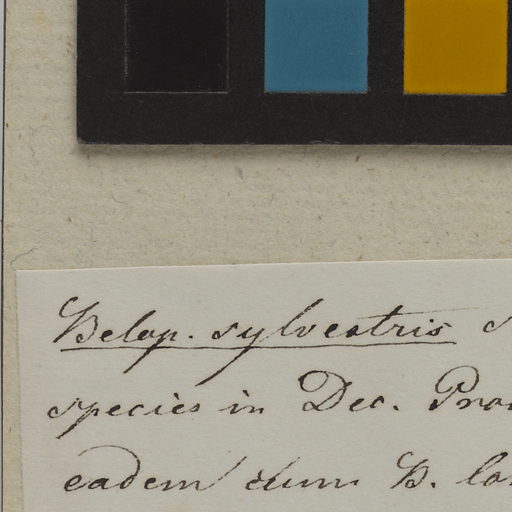 Belop. sylvestris s
species in Dec. Pro
eadem cum B. lo